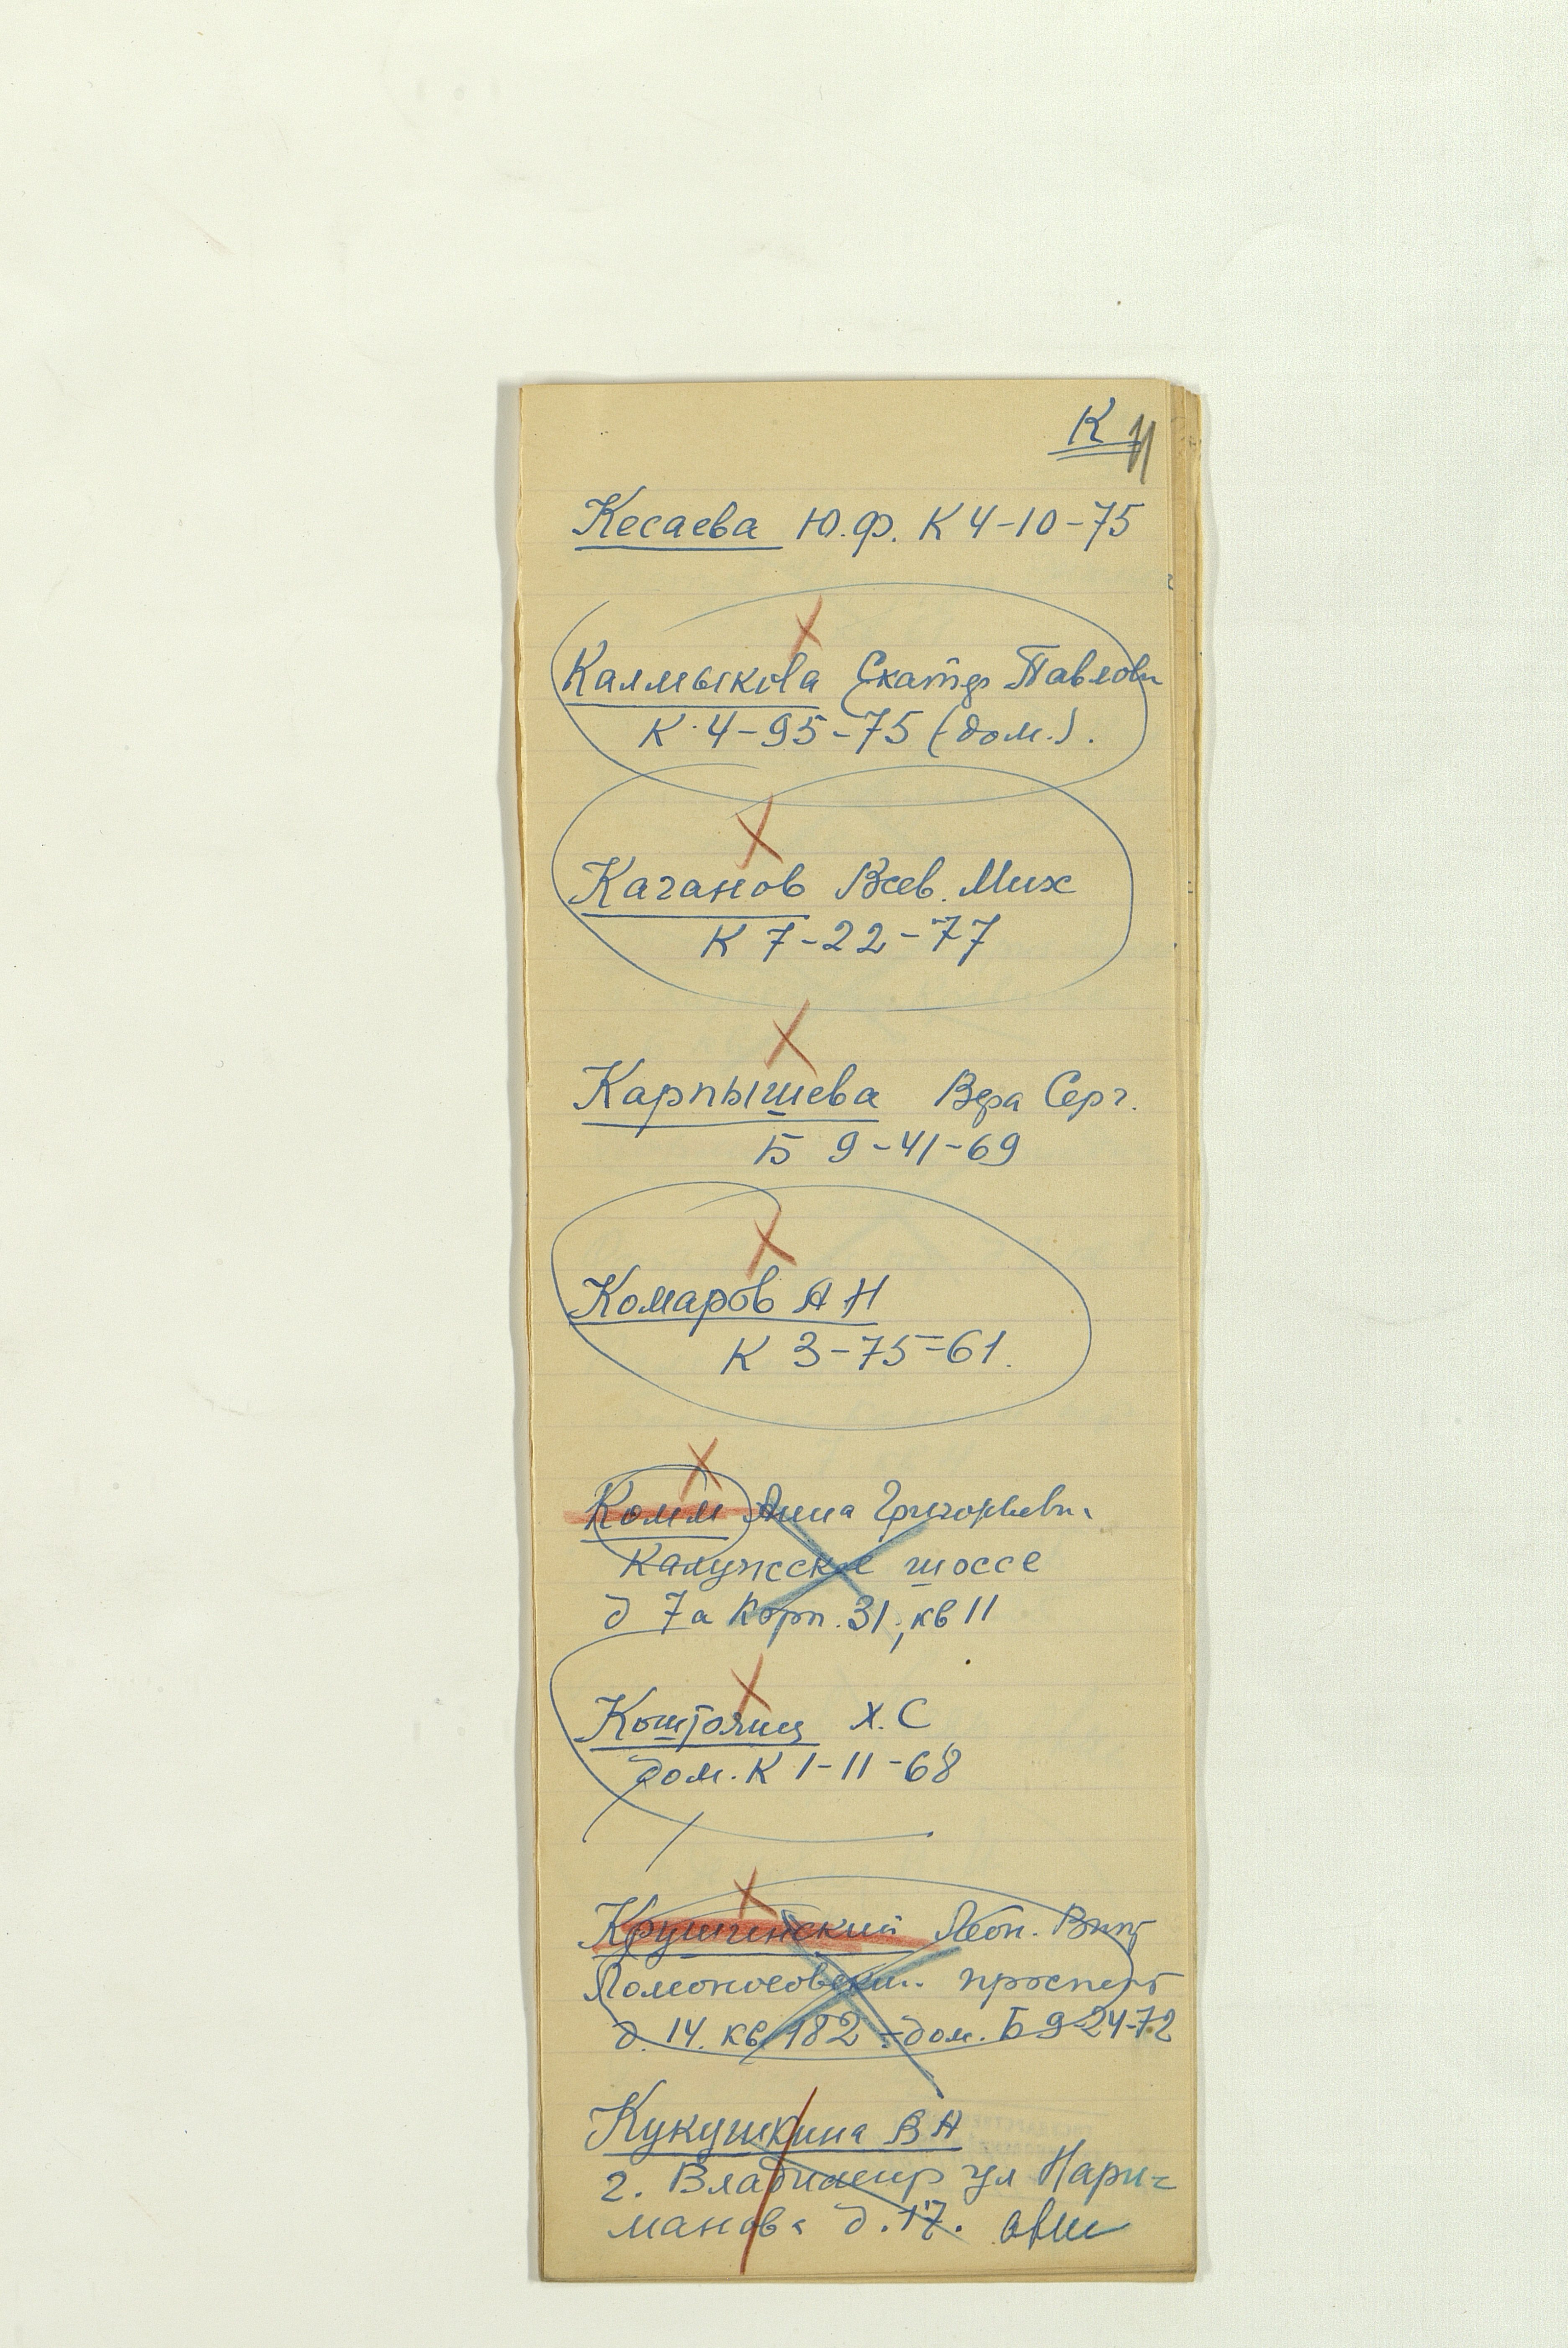 К 11
Кесаева Ю.Ф. К 4-10-75
Калмыкова Екатер Павловн
К 4-95-75 (дом.).
Каганов Всев. Мих
К 7-22-77
Карпышева Вера Серг.
Б 9-41-69
Комаров А Н
К 3-75-61.
Комм Анна Григорьевн.
Калужское шоссе
д 7а Корп. 31, кв 11
Коштоянц Х. С
дом. К 1-11-68
Крушинский Леон. Викт
Ломоносовский проспект
д. 14. кв 182 - дом. Б 9-24-72
Кукушкина В А
г. Владимир ул Нари-
манова д. 17.